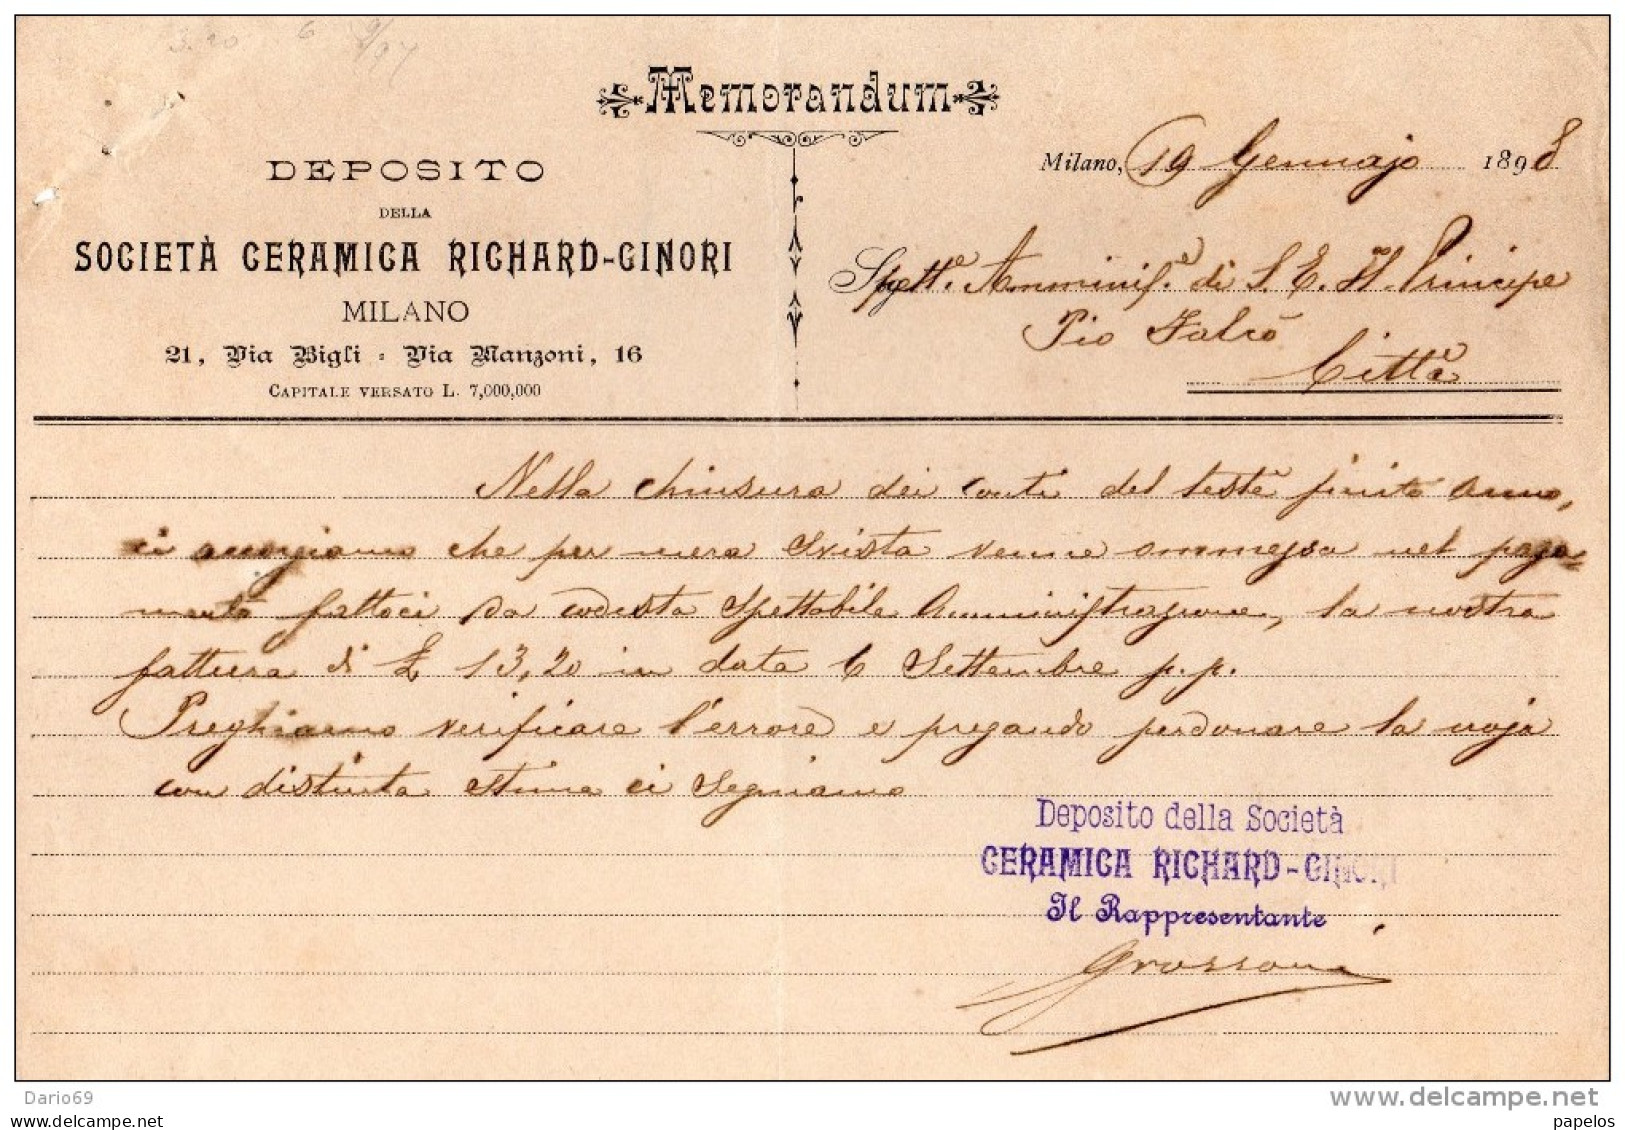 3.20 6 9/97
Memorandum
DEPOSITO
DELLA
SOCIETÀ CERAMICA RICHARD-GINORI
MILANO
21, Via Bigli - Via Manzoni, 16
CAPITALE VERSATO L. 7,000,000
Milano, 19 Gennajo 1898
Spett.e Amminis.e di S. E. Il Principe
Pio Falcò
Città
Nella chiusura dei conti del testè finito anno,
ci accorgiamo che per mera svista venne ommessa nel paga=
mento fattoci da codesta Spettabile Amministrazione, la nostra
fattura di £ 13,20 in data 6 Settembre p.p.
Preghiamo verificare l'errore e pregando perdonare la noja
con distinta stima ci segniamo
Deposito della Società
CERAMICA RICHARD-GINORI
Il Rappresentante
Grossoni
Dario69
www.delcampe.net
papelos